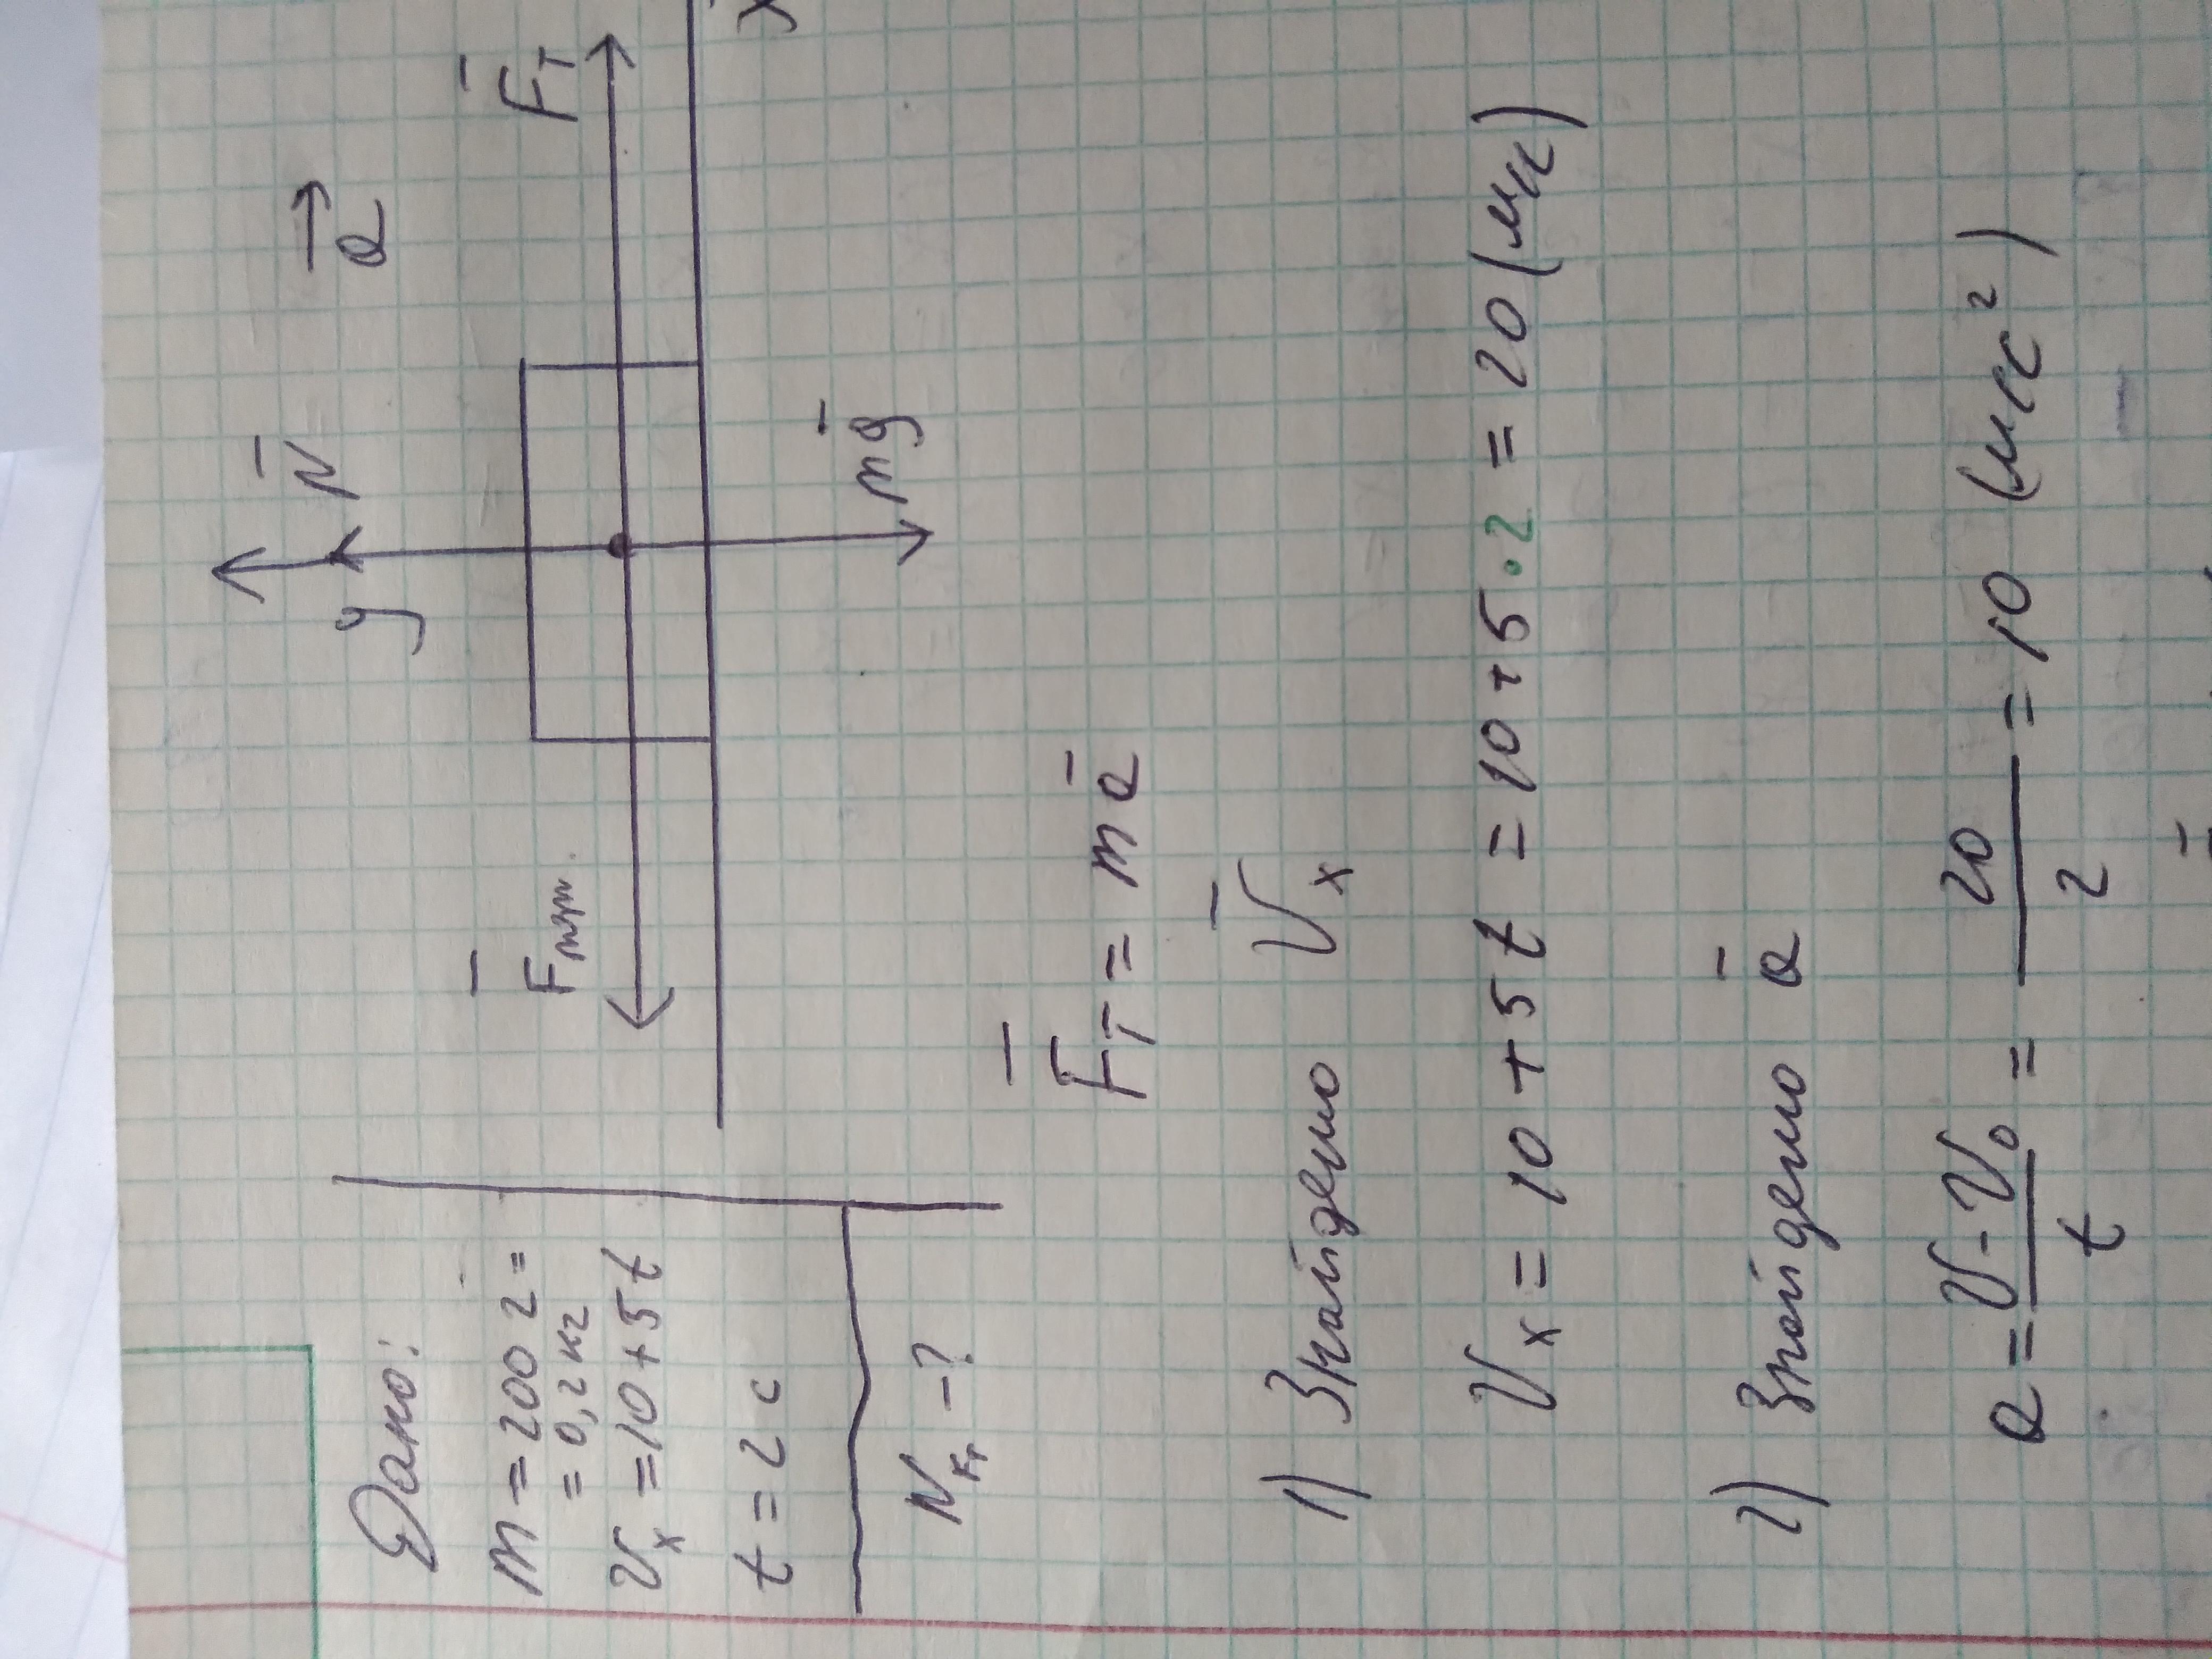 Дано:
m = 200 г =
= 0,2 кг
Vx = 10 + 5t
t = 2 c
Nкт - ?
y
N̅
a⃗
F̅тер.
F̅т
mg̅
F̅т = ma̅
1) Знайдемо V̅x
Vx = 10 + 5t = 10 + 5 · 2 = 20 (м/с)
2) Знайдемо a̅
a = (V - V₀)/t = 20/2 = 10 (м/с²)